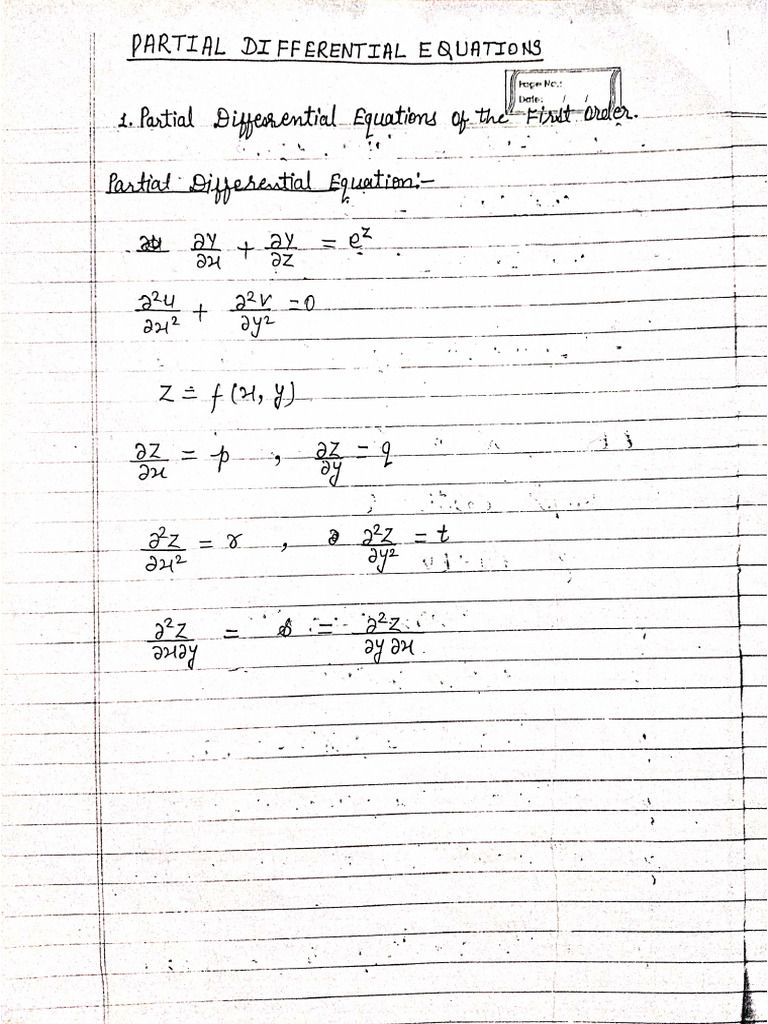 PARTIAL DIFFERENTIAL EQUATIONS
Page No.:
Date: / /
1. Partial Differential Equations of the First Order.
Partial Differential Equation:-
∂y/∂x + ∂y/∂z = e^z
∂²u/∂x² + ∂²v/∂y² = 0
z = f(x, y)
∂z/∂x = p , ∂z/∂y = q
∂²z/∂x² = r , ∂²z/∂y² = t
∂²z/∂x∂y = s = ∂²z/∂y∂x